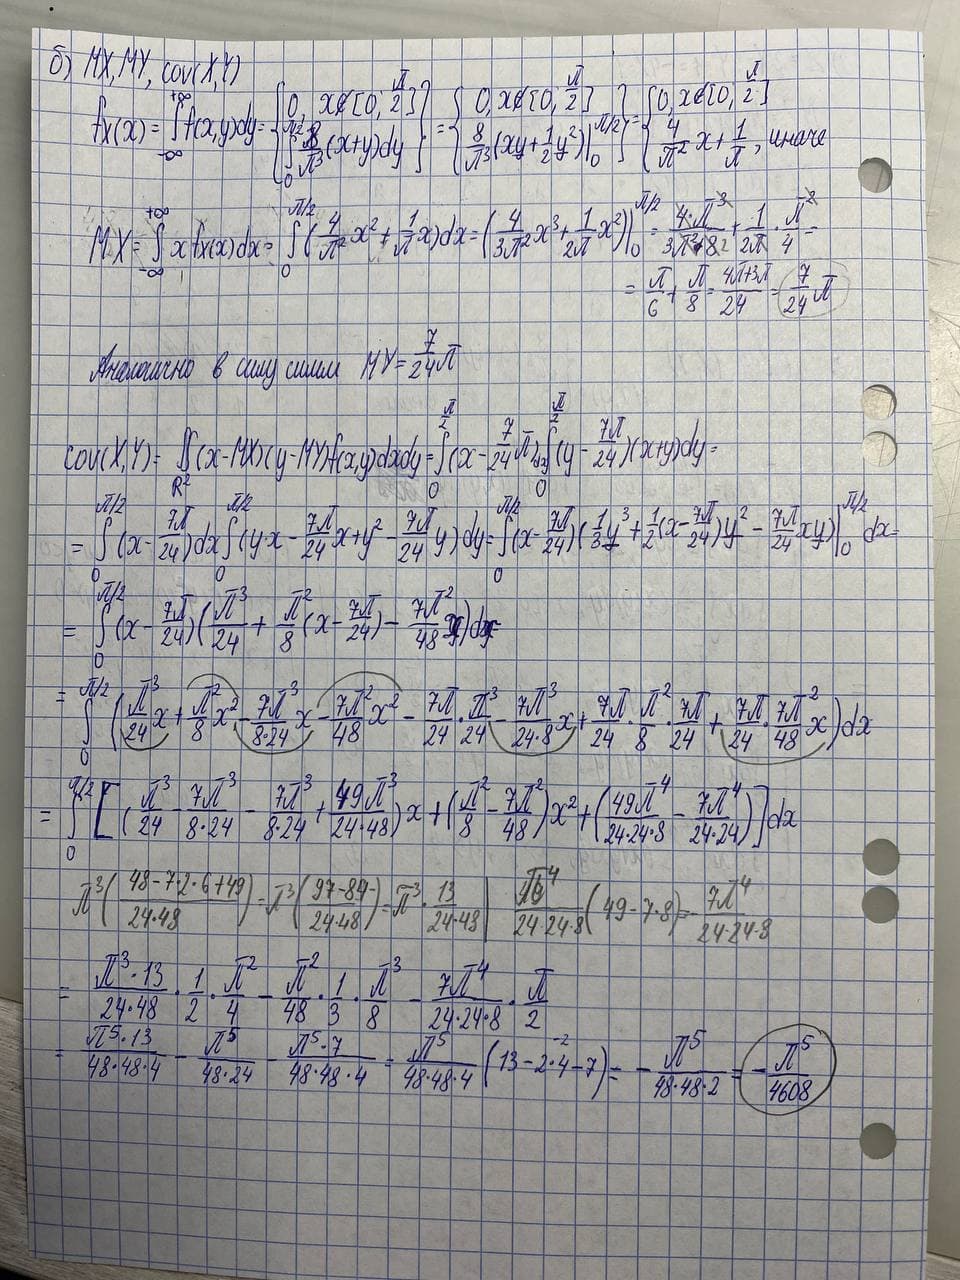 б) MX, MY, cov(X,Y)
fx(x) = ∫_{-∞}^{+∞} f(x,y)dy = {0, x∉[0; π/2]; ∫_0^{π/2} 8/π³ (x+y)dy} = {0, x∉[0; π/2]; 8/π³ (xy + 1/2 y²)|_0^{π/2}} = {0, x∉[0; π/2]; 4/π² x + 1/π, иначе
MX = ∫_{-∞}^{+∞} x fx(x)dx = ∫_0^{π/2} (4/π² x² + 1/π x)dx = (4/(3π²) x³ + 1/(2π) x²)|_0^{π/2} = 4·π³/(3π²·8 2) + 1/(2π) · π²/4 =
= π/6 + π/8 = (4π+3π)/24 = 7/24 π
Аналогично в силу симм MY = 7/24 π
cov(X,Y) = ∬_{R²} (x-MX)(y-MY)f(x,y)dxdy = ∫_0^{π/2} (x - 7/24 π)dx ∫_0^{π/2} (y - 7π/24)(x+y)dy =
= ∫_0^{π/2} (x - 7π/24)dx ∫_0^{π/2} (y·x - 7π/24 x + y² - 7π/24 y)dy = ∫_0^{π/2} (x - 7π/24)(1/3 y³ + 1/2 (x - 7π/24)y² - 7π/24 xy)|_0^{π/2} dx =
= ∫_0^{π/2} (x - 7π/24)(π³/24 + π²/8 (x - 7π/24) - 7π²/48 x)dx
= ∫_0^{π/2} (π³/24 x + π²/8 x² - 7π³/(8·24) x - 7π²/48 x² - 7π/24 · π³/24 - 7π³/(24·8) x + 7π/24 · π²/8 · 7π/24 + 7π/24 · 7π²/48 x)dx
= ∫_0^{π/2} [(π³/24 - 7π³/(8·24) - 7π³/(8·24) + 49π³/(24·48))x + (π²/8 - 7π²/48)x² + (49π⁴/(24·24·8) - 7π⁴/(24·24))]dx
π³((48-7·2·6+49)/(24·48)) = π³((97-84)/(24·48)) = π³ · 13/(24·48) | π⁴/(24·24·8) (49-7·8) = -7π⁴/(24·24·8)
= π³·13/(24·48) · 1/2 · π²/4 - π²/48 · 1/3 · π³/8 - 7π⁴/(24·24·8) · π/2
= π⁵·13/(48·48·4) - π⁵/(48·24) - π⁵·7/(48·48·4) = π⁵/(48·48·4) (13-2·4-7) = - π⁵/(48·48·2) = - π⁵/4608